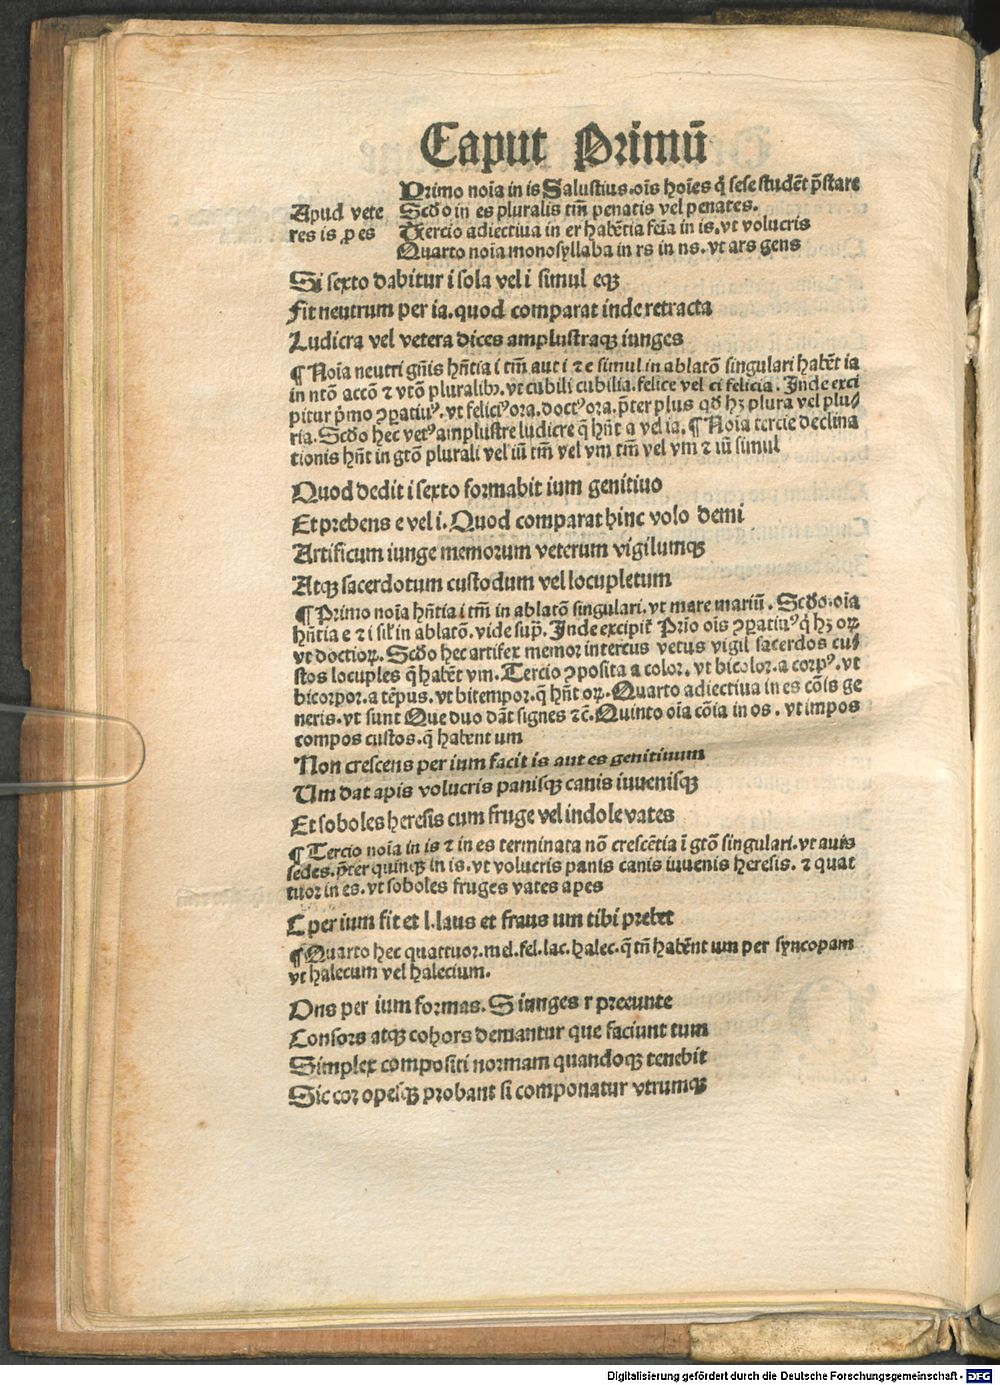 Caput Primū
Primo noīa in is Salustius.oīs hoīes q̇ sese studēt p̄stare
Apud vete Scd̄o in es pluralis tm̄ penatis vel penates.
res is ꝓ es Tercio adiectiua in er habētia fēīa in is.vt volucris
Quarto noīa monosyllaba in rs in ns.vt ars gens
Si sexto dabitur i sola vel i simul eqꝫ
Fit neutrum per ia.quod comparat inde retracta
Ludicra vel vetera dices amplustraqꝫ iunges
¶ Noīa neutri gn̄is hn̄tia i tm̄ aut i ⁊ e simul in ablatō singulari habēt ia
in ntō accō ⁊ vtō pluralibꝫ.vt cubili cubilia.felice vel ci felicia. Inde exci
pitur p̄mo ꝯꝑatiuꝰ.vt feliciꝰora.doctꝰora.p̄ter plus qd̄ hꝫ plura vel plu/
ria.Scd̄o hec vetꝰ amplustre ludicre q̄ hn̄t a vel ia.¶ Noīa tercie declina
tionis hn̄t in gtō plurali vel iū tm̄ vel vm tm̄ vel vm ⁊ iū simul
Quod dedit i sexto formabit ium genitiuo
Et prebens e vel i.Quod comparat hinc volo demi
Artificum iunge memorum veterum vigilumqꝫ
Atqꝫ sacerdotum custodum vel locupletum
¶ Primo noīa hn̄tia i tm̄ in ablatō singulari.vt mare mariū. Scd̄o.oīa
hn̄tia e ⁊ i sil̄ in ablatō.vide sup̄.Inde excipit̄ Prīo oīs ꝯꝑatiuꝰ q̇ hꝫ oꝝ
vt doctioꝝ.Scd̄o hec artifex memor intercus vetus vigil sacerdos cu/
stos locuples q̄ habēt vm.Tercio ꝯposita a color.vt bicolor.a corpꝰ.vt
bicorpor.a tēpus.vt bitempor.q̄ hn̄t oꝝ.Quarto adiectiua in es cōis ge
neris.vt sunt Que duo dāt signes ⁊c̄.Quinto oīa cōia in os.vt impos
compos custos.q̄ habent um
Non crescens per ium facit is aut es genitiuum
Um dat apis volucris panisqꝫ canis iuuenisqꝫ
Et soboles heresis cum fruge vel indole vates
¶ Tercio noīa in is ⁊ in es terminata nō crescētia ī gtō singulari.vt auis
sedes.p̄ter quinqꝫ in is.vt volucris panis canis iuuenis heresis.⁊ quat
tuor in es.vt soboles fruges vates apes
C per ium fit et l.laus et fraus um tibi prebet
¶ Quarto hec quattuor.mel.fel.lac.halec.q̄ tn̄ habēnt um per syncopam
vt halecum vel halecium.
Ons per ium formas.S iunges r preeunte
Consors atqꝫ cohors demantur que faciunt tum
Simplex compositi normam quandoqꝫ tenebit
Sic cor opesqꝫ probant si componatur vtrumqꝫ
Digitalisierung gefördert durch die Deutsche Forschungsgemeinschaft - DFG